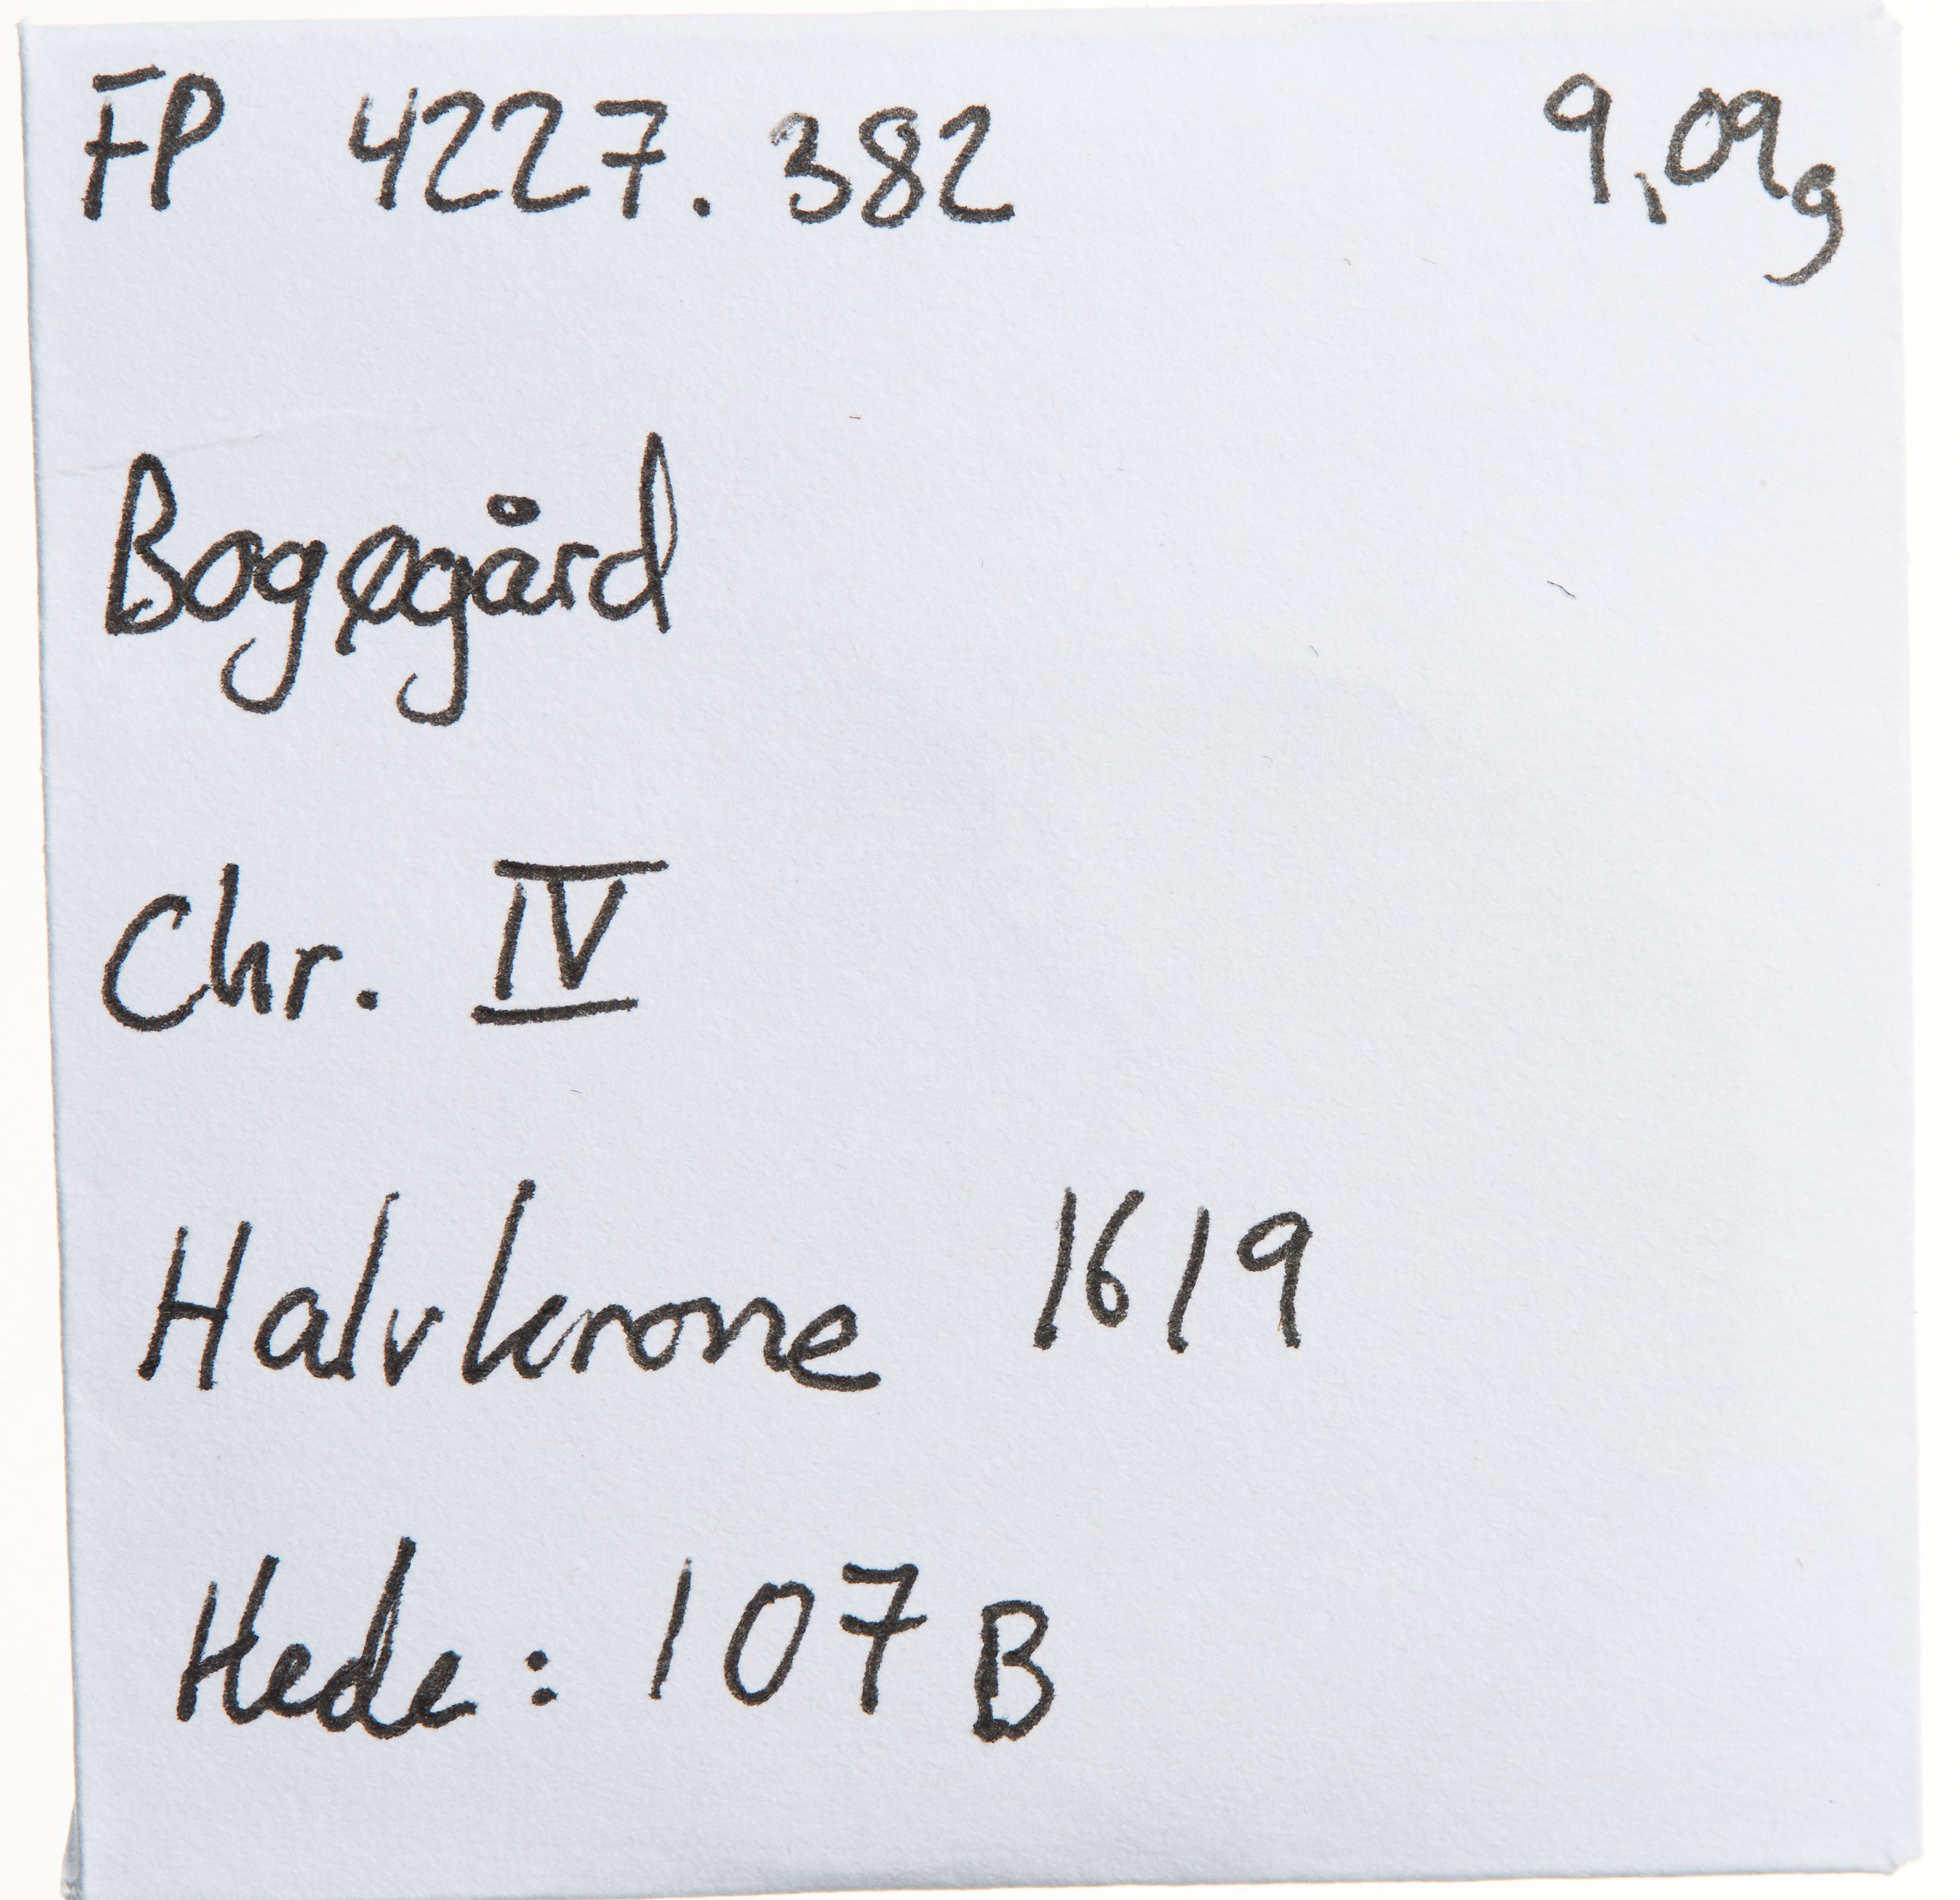 FP 4227.382 9,09g
Bogøgård
Chr. IV
Halvkrone 1619
Hede: 107B